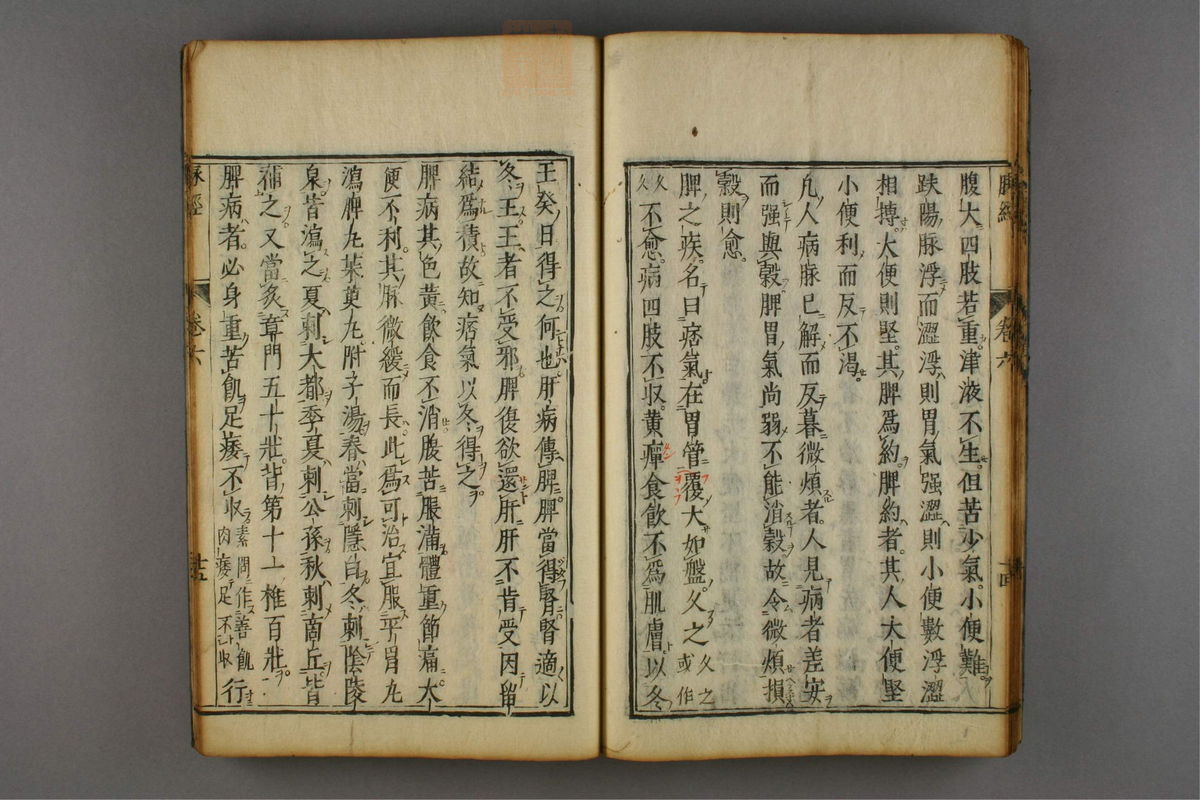 腹大四肢若重津液不生但苦少氣小便難
趺陽脉浮而澀浮則胃氣强澀則小便數浮澀
相搏大便則堅其脾爲約脾約者其人大便堅
小便利而反不渴
凡人病脉已解而反暮微煩者人見病者差安
而强與穀脾胃氣尚弱不能消穀故令微煩損
穀則愈
脾之疾名曰痞氣在胃管覆大如盤久之久之或作
久久不愈病四肢不収黃癉食飲不爲肌膚以冬
王癸日得之何也肝病傳脾脾當傳腎腎適以
冬王王者不受邪脾復欲還肝肝不肯受因留
結爲積故知痞氣以冬得之
脾病其色黃飲食不消腹苦脹滿體重節痛大
便不利其脉微緩而長此爲可治宜服平胃丸
瀉脾丸茱萸丸附子湯春當刺隱白冬刺陰陵
泉皆瀉之夏刺大都季夏刺公孫秋刺商丘皆
補之又當灸章門五十壯背第十一椎百壯
脾病者必身重苦飢足痿不収素問作善飢肉痿足不収行
脉經
卷六
十四
脉經
卷六
十五